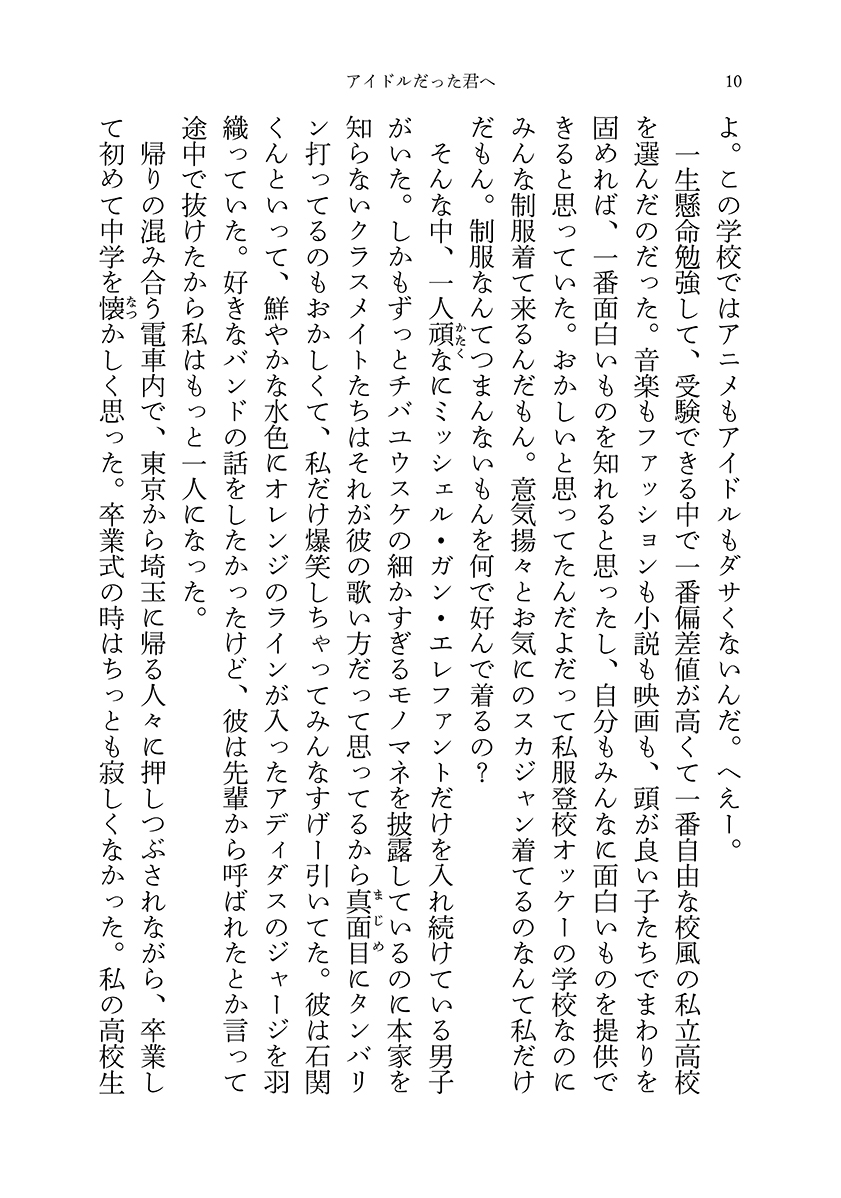 アイドルだった君へ
10
よ。この学校ではアニメもアイドルもダサくないんだ。へえー。
一生懸命勉強して、受験できる中で一番偏差値が高くて一番自由な校風の私立高校
を選んだのだった。音楽もファッションも小説も映画も、頭が良い子たちでまわりを
固めれば、一番面白いものを知れると思ったし、自分もみんなに面白いものを提供で
きると思っていた。おかしいと思ってたんだよだって私服登校オッケーの学校なのに
みんな制服着て来るんだもん。意気揚々とお気にのスカジャン着てるのなんて私だけ
だもん。制服なんてつまんないもんを何で好んで着るの？
そんな中、一人頑なにミッシェル・ガン・エレファントだけを入れ続けている男子
かたく
がいた。しかもずっとチバユウスケの細かすぎるモノマネを披露しているのに本家を
知らないクラスメイトたちはそれが彼の歌い方だって思ってるから真面目にタンバリ
まじめ
ン打ってるのもおかしくて、私だけ爆笑しちゃってみんなすげー引いてた。彼は石関
くんといって、鮮やかな水色にオレンジのラインが入ったアディダスのジャージを羽
織っていた。好きなバンドの話をしたかったけど、彼は先輩から呼ばれたとか言って
途中で抜けたから私はもっと一人になった。
帰りの混み合う電車内で、東京から埼玉に帰る人々に押しつぶされながら、卒業し
て初めて中学を懐かしく思った。卒業式の時はちっとも寂しくなかった。私の高校生
なつ